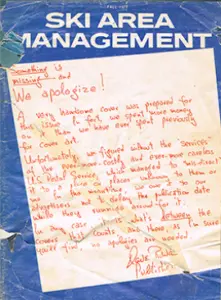 FALL 1977
SKI AREA
MANAGEMENT
Something is
missing - and
We apologize!
A very handsome cover was prepared for
this issue. In fact, we spent more money
on it than we have ever spent previously
for cover art.
Unfortunately, we figured without the services
of the even-more-costly and even more careless
U.S. Postal Service, which managed to
it to
in the meantime, we owe it to our
advertisers not to delay the publication date
while they running around for it.
In any case, it's what's between the
covers that counts and there, as I'm sure
you'll find, no apologies are needed.